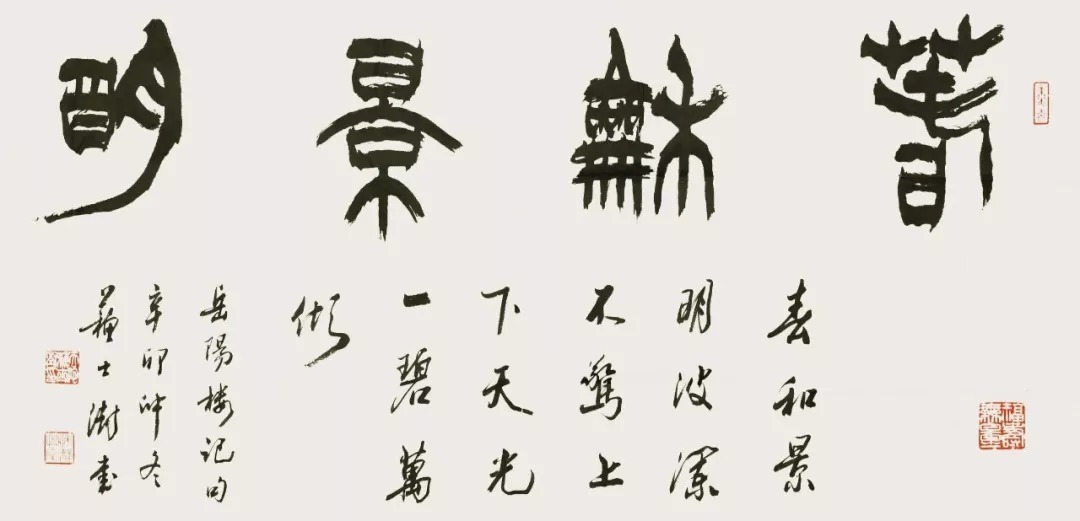 春龢景明
春和景
明波瀾
不驚上
下天光
一碧萬
頃
岳陽樓記句
辛卯仲冬
蘇士澍書